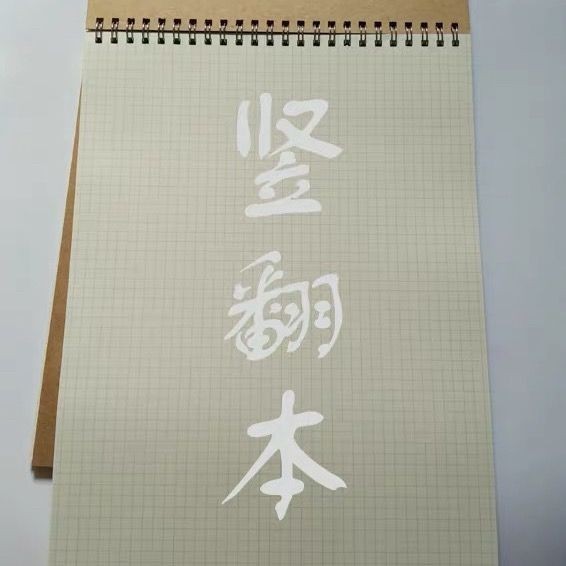 竖翻本